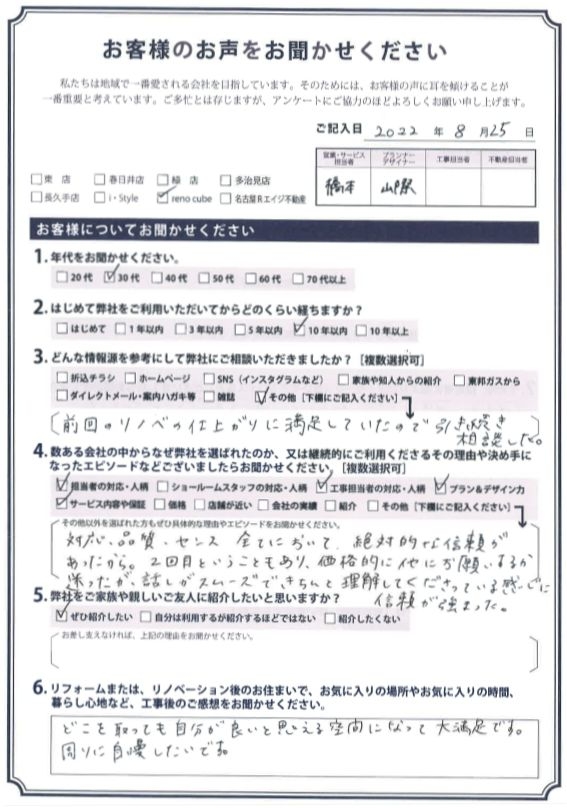 お客様のお声をお聞かせください
私たちは地域で一番愛される会社を目指しています。そのためには、お客様の声に耳を傾けることが
一番重要と考えています。ご多忙とは存じますが、アンケートにご協力のほどよろしくお願い申し上げます。
ご記入日 2022 年 8 月 25 日
営業・サービス担当者 プランナーデザイナー 工事担当者 不動産担当者
橋本
□東 店 □春日井店 □緑 店 □多治見店
□長久手店 □i・Style ☑reno cube □名古屋Rエイジ不動産
お客様についてお聞かせください
1. 年代をお聞かせください。
□20代 ☑30代 □40代 □50代 □60代 □70代以上
2. はじめて弊社をご利用いただいてからどのくらい経ちますか？
□はじめて □1年以内 □3年以内 □5年以内 ☑10年以内 □10年以上
3. どんな情報源を参考にして弊社にご相談いただきましたか？［複数選択可］
□折込チラシ □ホームページ □SNS（インスタグラムなど） □家族や知人からの紹介 □東邦ガスから
□ダイレクトメール・案内ハガキ等 □雑誌 ☑その他［下欄にご記入ください］
前回のリノベの仕上がりに満足していたので 引き続き
相談した。
4. 数ある会社の中からなぜ弊社を選ばれたのか、又は継続的にご利用くださるその理由や決め手に
なったエピソードなどございましたらお聞かせください。［複数選択可］
☑担当者の対応・人柄 □ショールームスタッフの対応・人柄 ☑工事担当者の対応・人柄 ☑プラン＆デザイン力
☑サービス内容や保証 □価格 □店舗が近い □会社の実績 □紹介 □その他［下欄にご記入ください］
その他以外を選ばれた方もぜひ具体的な理由やエピソードをお聞かせください。
対応、品質、センス 全てにおいて、絶対的な信頼が
あったから。2回目ということもあり、価格的に他にお願いするか
迷ったが、話しがスムーズできちんと理解してくださっている感じに
信頼が強まった。
5. 弊社をご家族や親しいご友人に紹介したいと思いますか？
☑ぜひ紹介したい □自分は利用するが紹介するほどではない □紹介したくない
お差し支えなければ、上記の理由をお聞かせください。
6. リフォームまたは、リノベーション後のお住まいで、お気に入りの場所やお気に入りの時間、
暮らし心地など、工事後のご感想をお聞かせください。
どこを取っても自分が良いと思える空間になって大満足です。
周りに自慢したいです。